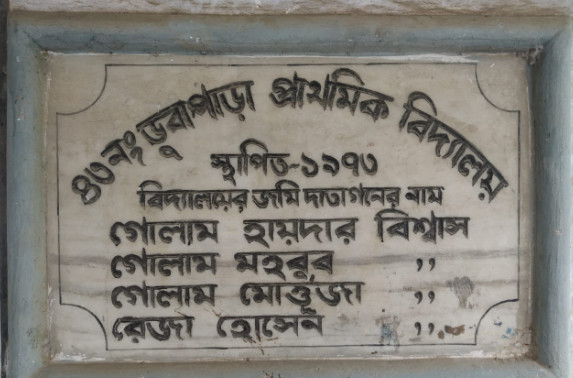 ৪৩নং ডুবাপাড়া প্রাথমিক বিদ্যালয়
স্থাপিত-১৯৭৩
বিদ্যালয়ের জমি দাতাগনের নাম
গোলাম হায়দার বিশ্বাস
গোলাম মহবুব ,,
গোলাম মোর্ত্তুজা ,,
রেজা হোসেন ,,